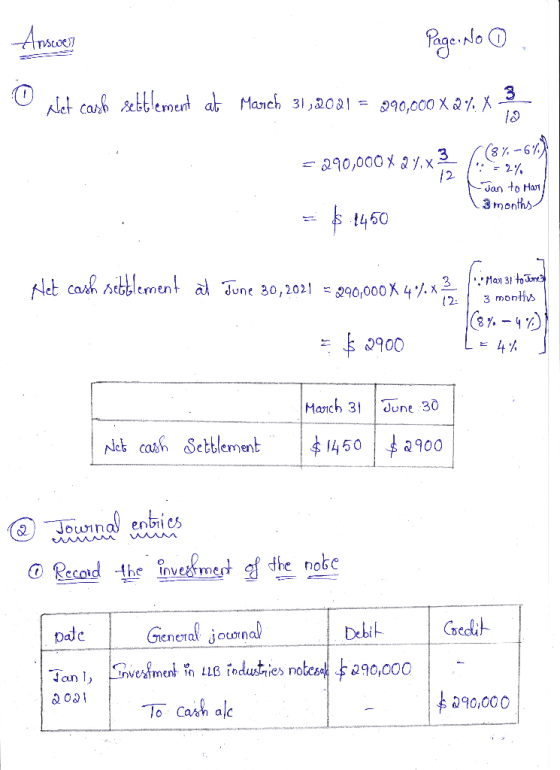 Answer
Page.No ①
① Net cash settlement at March 31, 2021 = 290,000 X 2% X 3/12
= 290,000 X 2% X 3/12
(∵ (8% - 6%)
= 2%
Jan to Mar
3 months)
= $ 1450
Net cash settlement at June 30, 2021 = 290,000 X 4% X 3/12
[∵ Mar 31 to June 3
3 months
(8% - 4%)
= 4%
= $ 2900
March 31 June 30
Net cash Settlement $1450 $2900
② Journal entries
① Record the investment of the note
Date General journal Debit Credit
Jan 1, 2021 Investment in LLB industries notes $290,000 -
To Cash a/c - $290,000